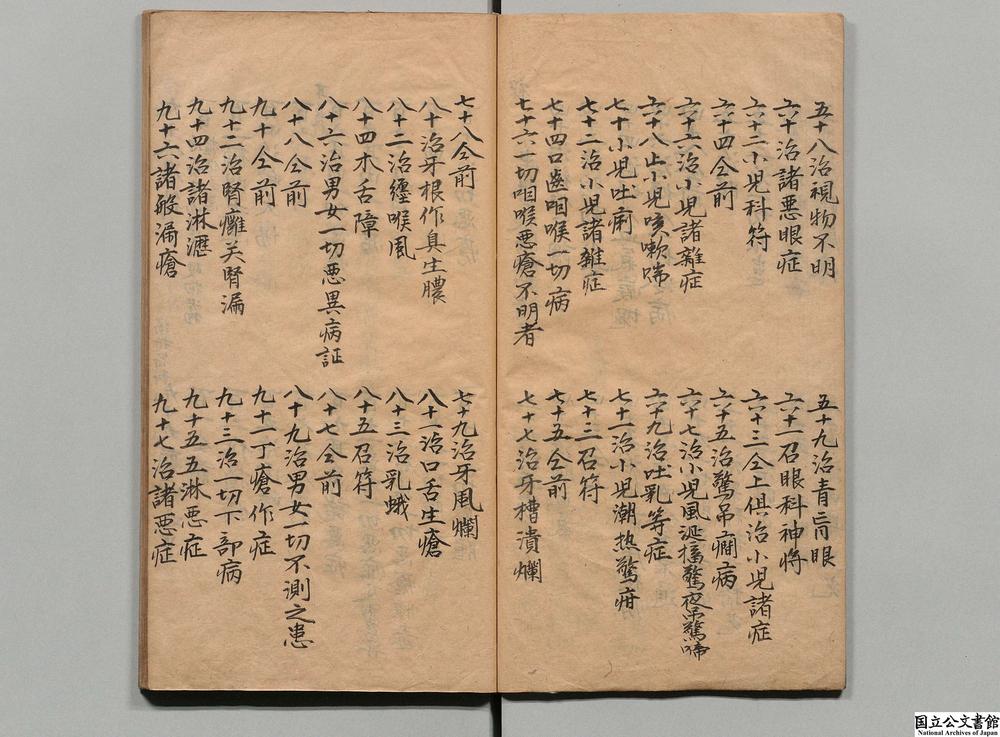 五十八治視物不明
五十九治青盲眼
六十治諸悪眼症
六十一召眼科神将
六十二小児科符
六十三仝上俱治小児諸症
六十四仝前
六十五治驚吊癇病
六十六治小児諸雜症
六十七治小児風涎搐驚夜哭驚啼
六十八止小児咳嗽喘
六十九治吐乳等症
七十小児吐痢
七十一治小児潮热驚疳
七十二治小児諸雜症
七十三召符
七十四口齒咽喉一切病
七十五仝前
七十六一切咽喉悪瘡不明者
七十七治牙槽潰爛
七十八仝前
七十九治牙風爛
八十治牙根作臭生膿
八十一治口舌生瘡
八十二治纏喉風
八十三治乳蛾
八十四木舌障
八十五召符
八十六治男女一切悪異病証
八十七仝前
八十八仝前
八十九治男女一切不測之患
九十仝前
九十一丁瘡作症
九十二治腎癰关腎漏
九十三治一切下部病
九十四治諸淋瀝
九十五五淋悪症
九十六諸般漏瘡
九十七治諸悪症
国立公文書館
National Archives of Japan